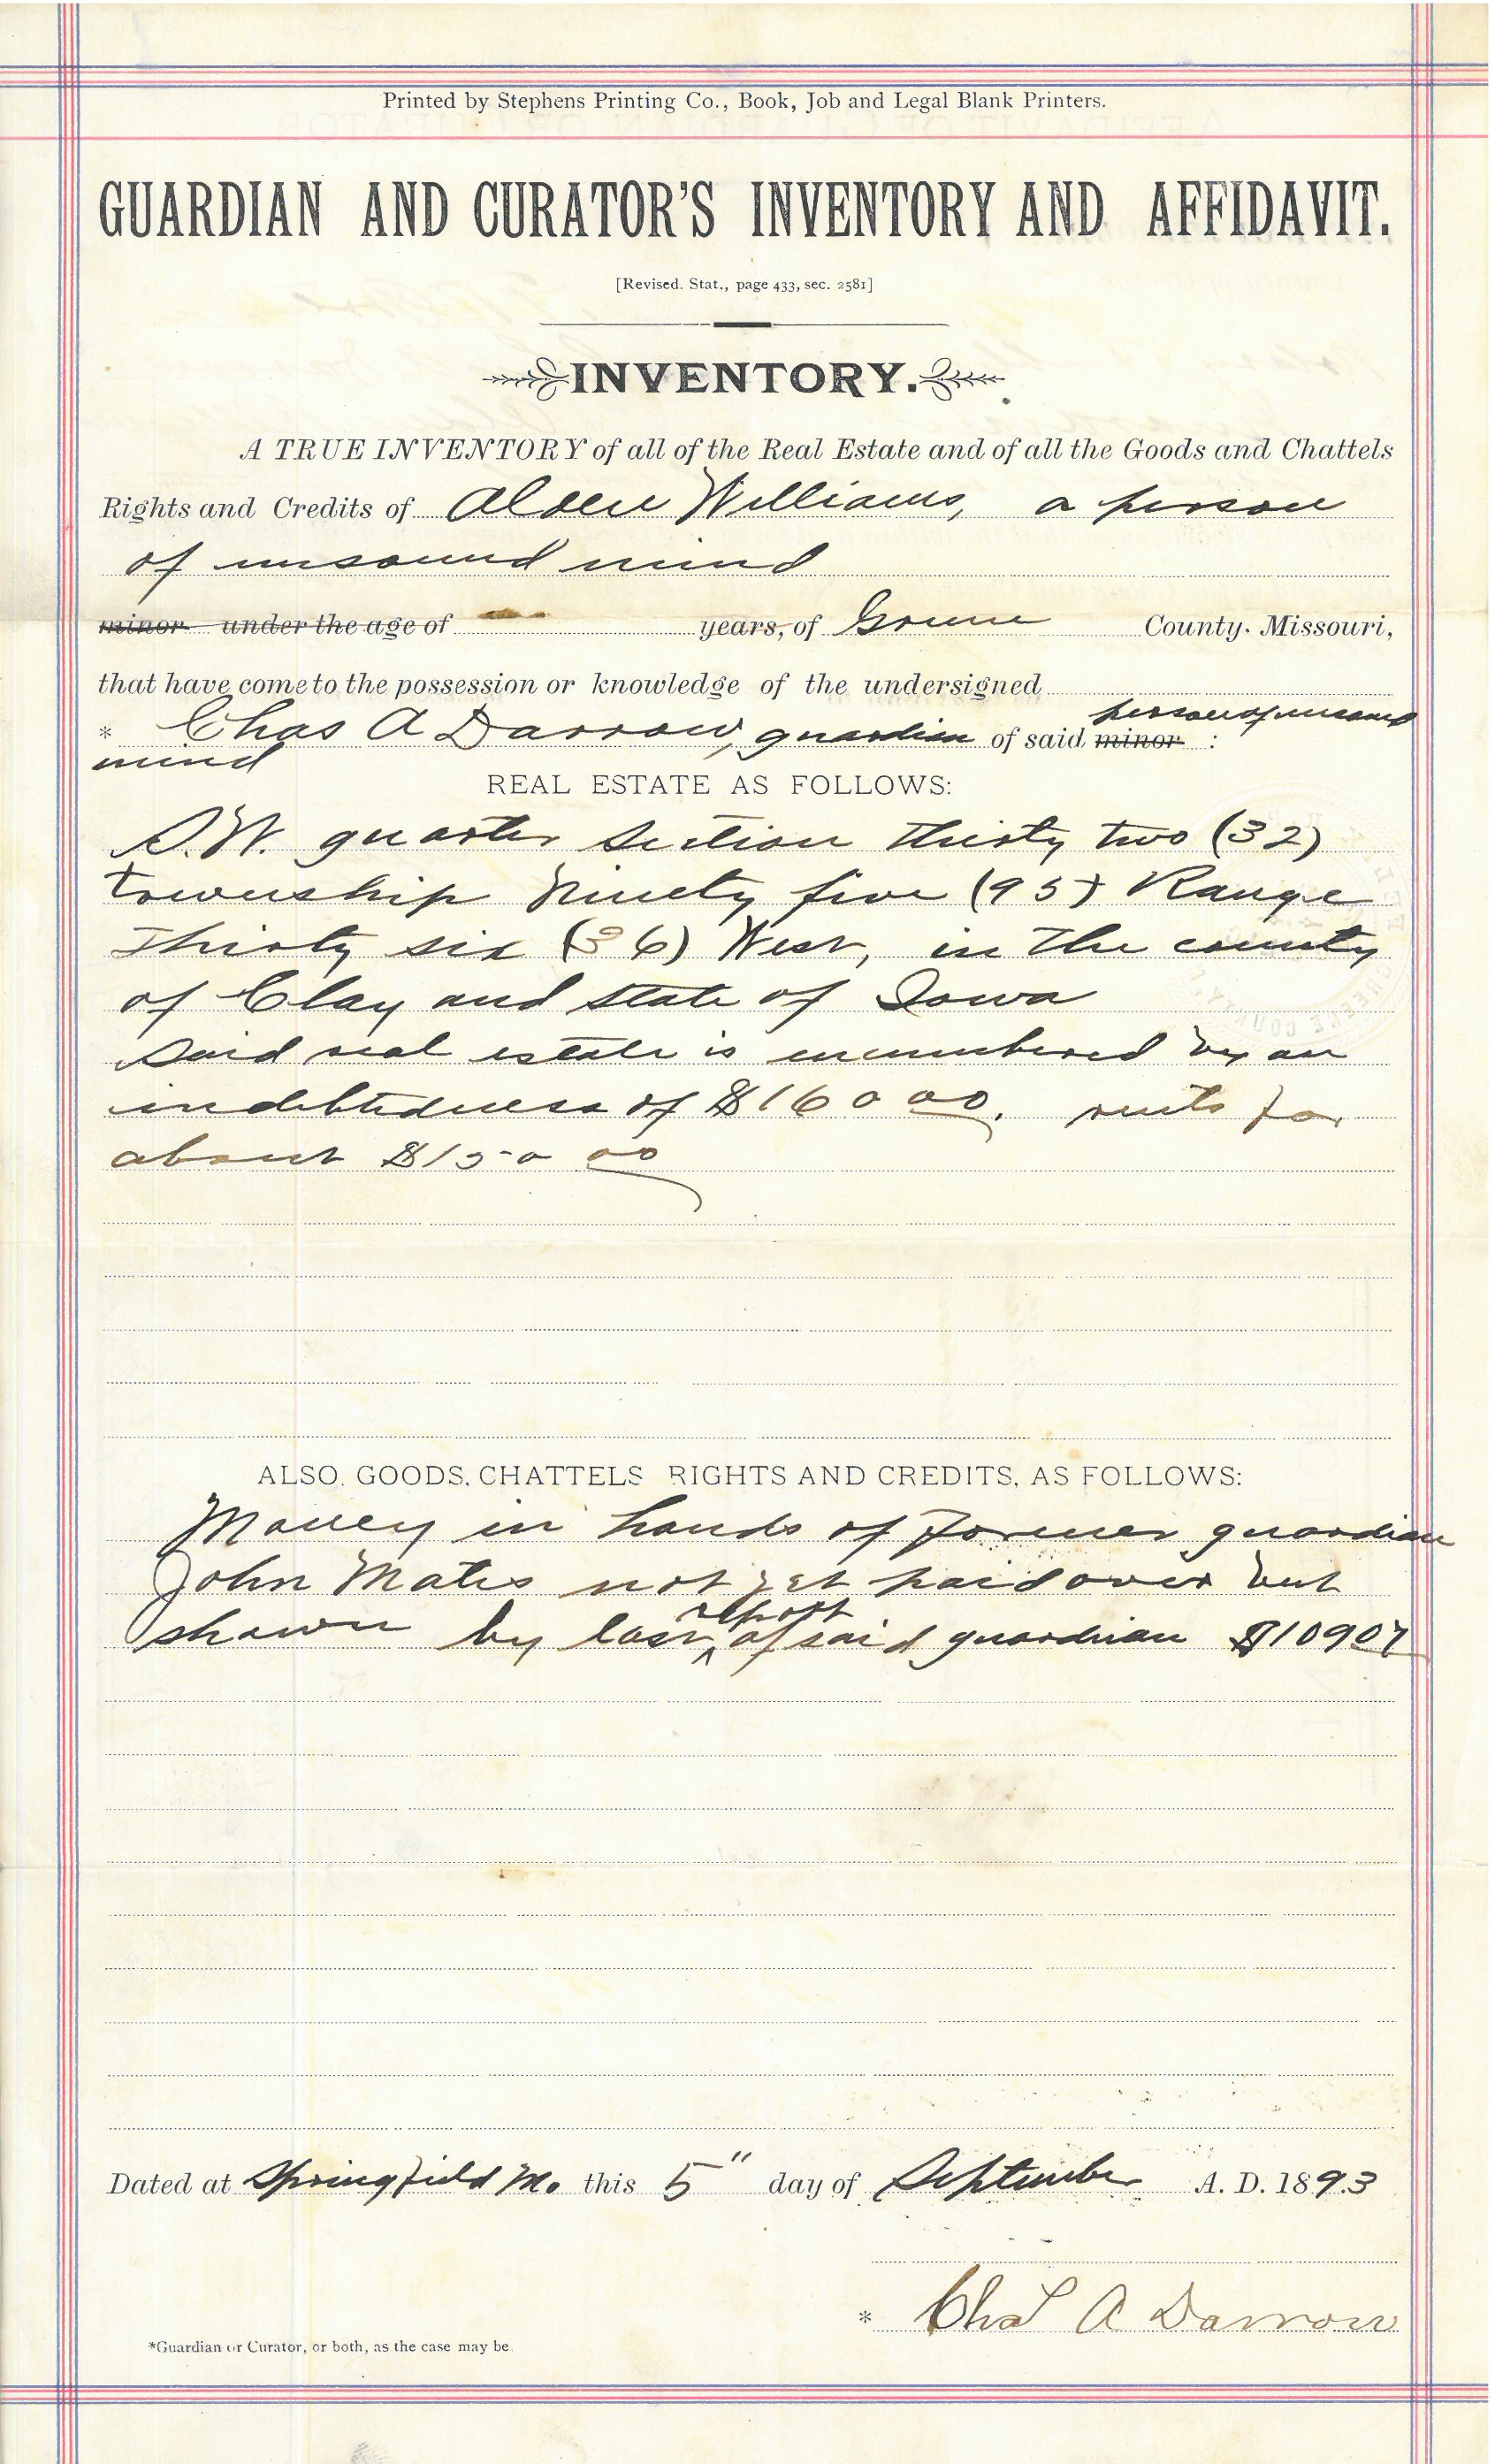 Printed by Stephens Printing Co., Book, Job and Legal Blank Printers.
GUARDIAN AND CURATOR'S INVENTORY AND AFFIDAVIT.
[Revised. Stat., page 433, sec. 2581]
INVENTORY.
A TRUE INVENTORY of all of the Real Estate and of all the Goods and Chattels
Rights and Credits of Alden Williams, a person
of unsound mind
minor under the age of years, of Greene County. Missouri,
that have come to the possession or knowledge of the undersigned
person of unsound
* Chas A Darrow, guardian of said minor :
mind
REAL ESTATE AS FOLLOWS:
S.W. quarter Section thirty two (32)
township Ninety five (95) Range
Thirty six (36) West, in the county
of Clay and State of Iowa
Said real estate is encumbered by an
indebtedness of $1600 00. rents for
about $150 00
ALSO, GOODS, CHATTELS RIGHTS AND CREDITS, AS FOLLOWS:
Money in hands of former guardian
John Mates not yet paid over but
report
shown by last ^ of said guardian $109 07
Dated at Springfield Mo. this 5" day of September A. D. 1893
* Chas A Darrow
*Guardian or Curator, or both, as the case may be